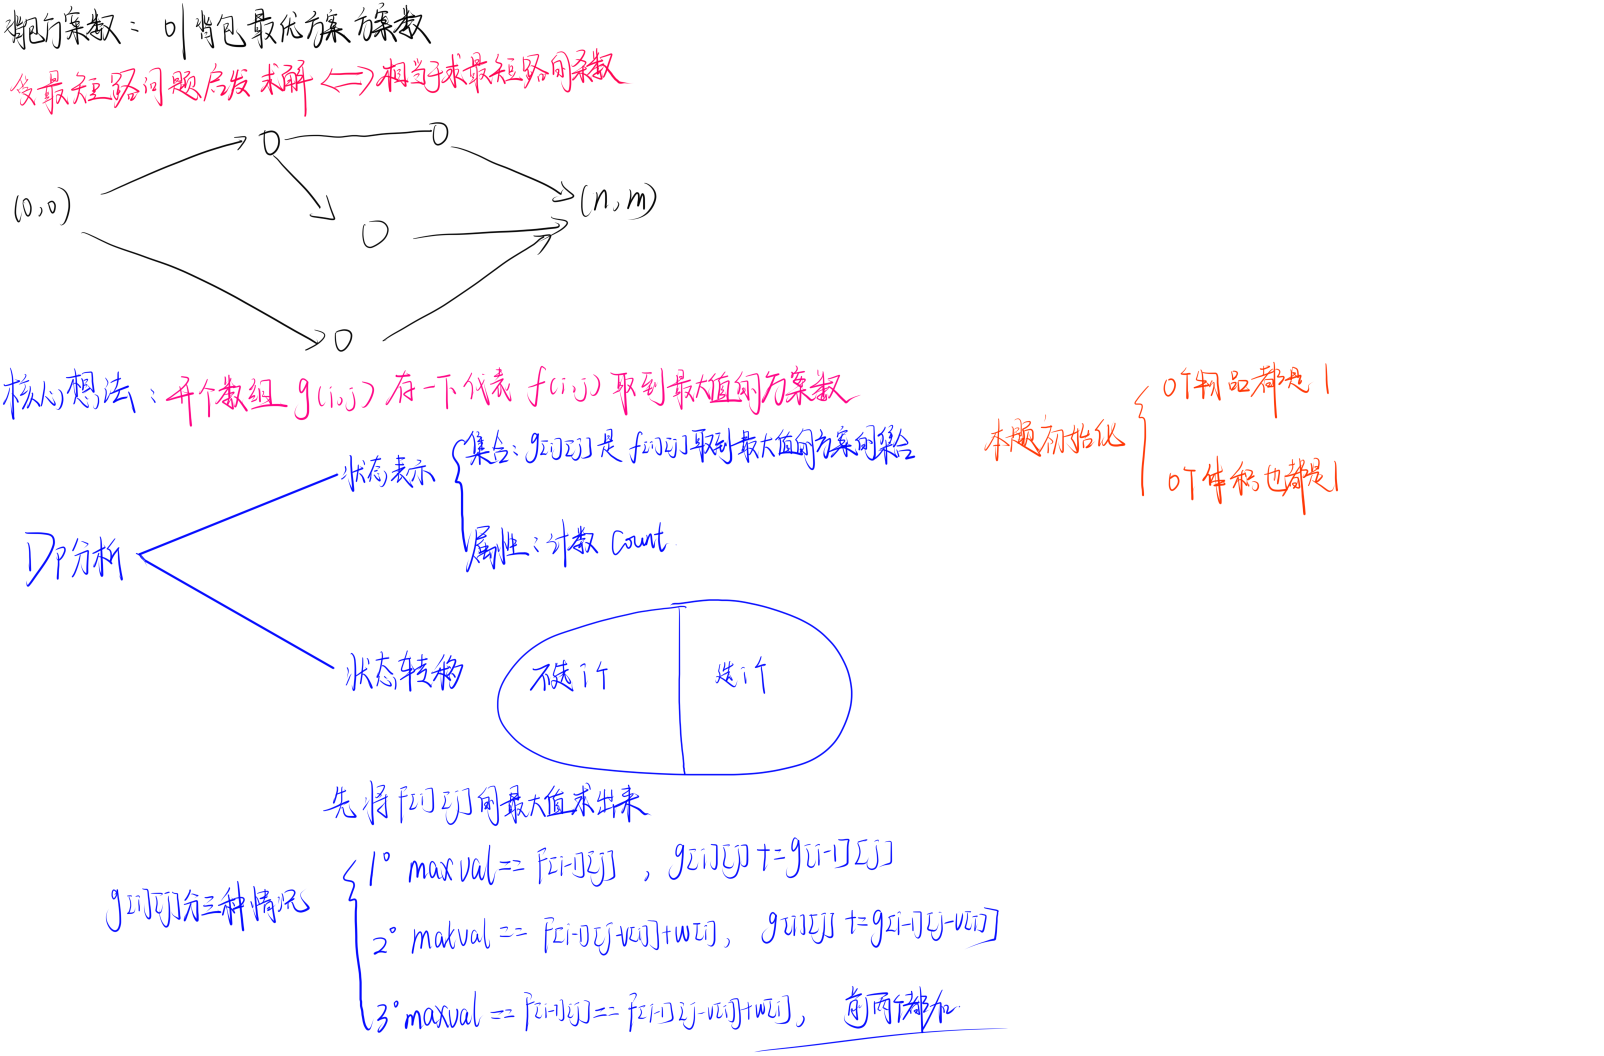 背包方案数：01背包最优方案方案数
受最短路问题启发求解 <=> 相当于求最短路的条数
(0,0)
(n,m)
核心想法：开个数组 g(i,j) 存一下代表 f(i,j) 取到最大值的方案数
本题初始化
0个物品都是1
0个体积也都是1
DP分析
状态表示
集合：g[i][j]是f[i][j]取到最大值的方案的集合
属性：计数 count
状态转移
不选i个
选i个
先将F[i][j]的最大值求出来
g[i][j]分三种情况
1° maxval == F[i-1][j] , g[i][j] += g[i-1][j]
2° matval == F[i-1][j-v[i]]+w[i], g[i][j] += g[i-1][j-v[i]]
3° maxval == F[i-1][j] == F[i-1][j-v[i]]+w[i], 前两个都加